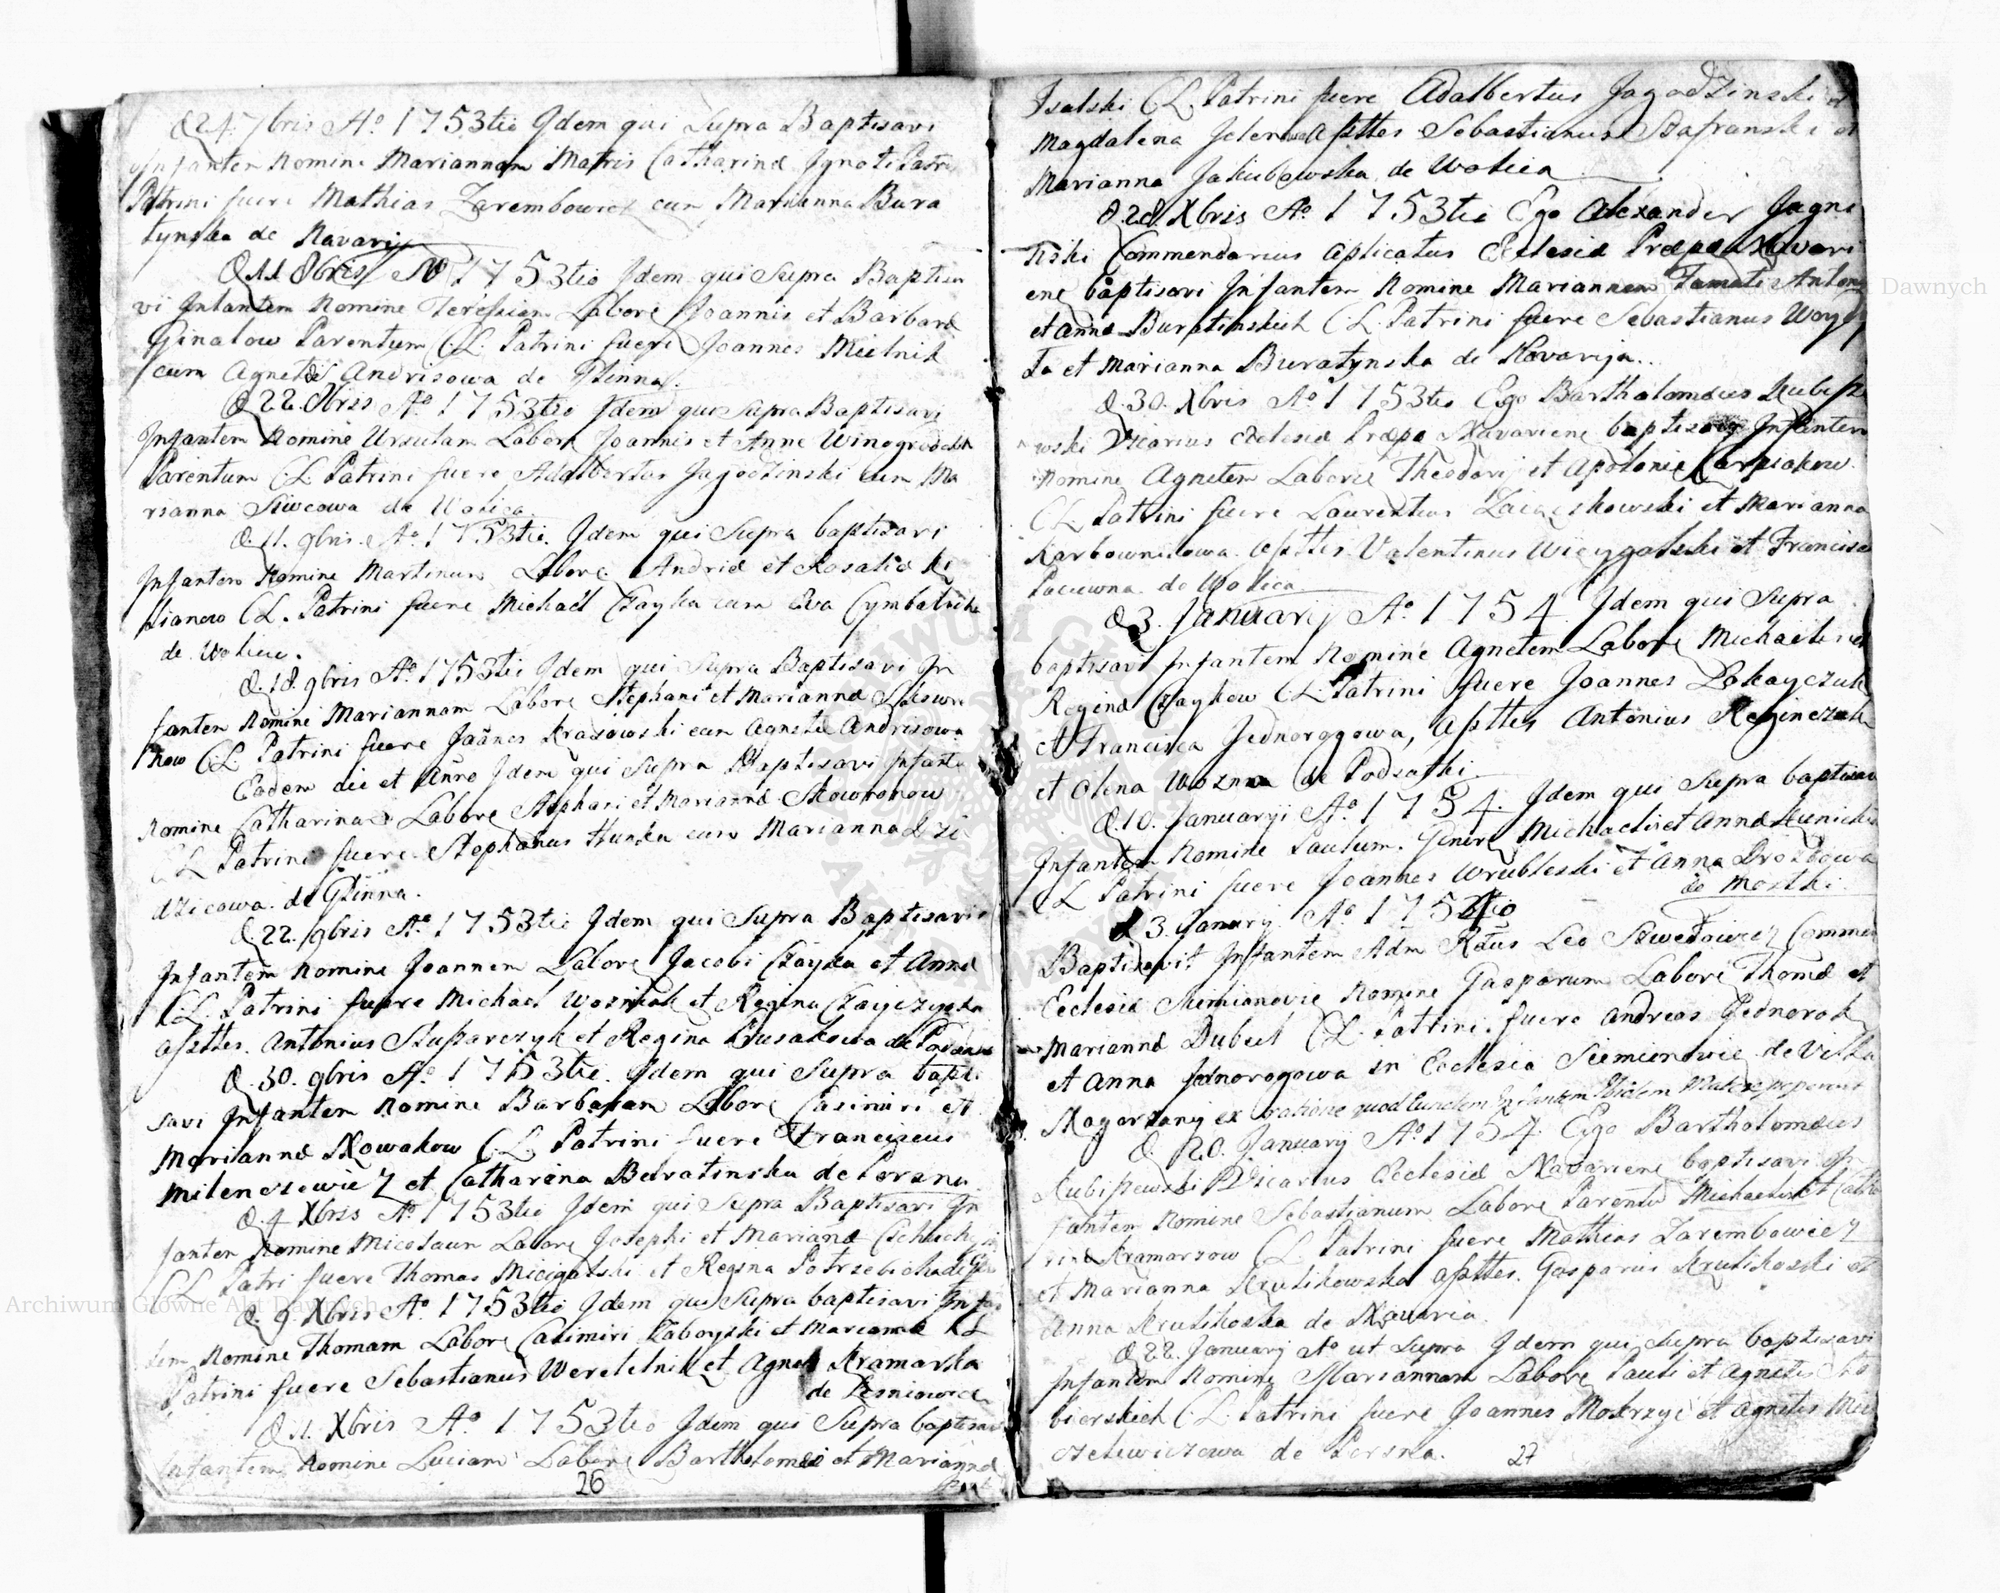 D. 24. 7bris Ao 1753tio Idem qui Supra Baptisavi
Infantem Nomine Mariannam Matris Catharinæ Ignoti Patris
Patrini fuere Mathias Zarembowicz cum Marianna Bura
tynska de Navarija
D. 11 8bris Ao 1753tio Idem qui Supra Baptisa
vi Infantem Nomine Teresiam Labore Joannis et Barbaræ
Ginalow Parentum C:L. Patrini fuere Joannes Mielnik
cum Agnete Andrisowa de Glinna.
D. 22. 8bris Ao 1753tio Idem qui Supra Baptisavi
Infantem Nomine Ursulam Labore Joannis et Anne
Parentum C:L. Patrini fuere Adalbertus Jagodzinski cum Ma
rianna Siwcowa de Wolica.
D. 11. 9bris. Ao 1753tio. Idem qui Supra baptisavi
Infantem Nomine Martinum Labore Andriæ et Rosaliæ Ki
lianow C:L. Patrini fuere Michael Czayka cum Eva
de Wolica.
D. 18. 9bris Ao 1753tio Idem qui Supra Baptisavi In
fantem Nomine Mariannam Labore Stephani et Mariannæ
C:L. Patrini fuere Joanes Krasowski cum Agnete Andrisowa
Eadem die et Anno Idem qui Supra Baptisavi Infante
Nomine Catharina Labore Stephani et Mariannæ Skowronow
C:L. Patrini fuere Stephanus Hunka cum Marianna Dzi
dzicowa de Glinna.
D. 22. 9bris Ao 1753tio Idem qui Supra Baptisavi
Infantem Nomine Joannem Labore Jacobi Czayka et Annæ
C:L. Patrini fuere Michael Wozniak et Regina
Assttes. Antonius Stusarczyk et Regina Rusakowa de
D. 30. 9bris Ao 1753tio. Idem qui Supra bapti
savi Infantem Nomine Barbaram Labore Casimiri et
Mariannæ Nowakow C:L. Patrini fuere Franciscus
Milenczewicz et Catharina Buratinska de Porsna
D. 4 Xbris Ao 1753tio Idem qui Supra Baptisavi In
fantem Nomine Micolaum Labore Josephi et Marianæ
C:L. Patri fuere Thomas Micigalski et Regina
D. 9. Xbris Ao 1753tio Idem qui Supra baptisavi Infan
tem Nomine Thomam Labore Casimiri Zaboyski et Mariannæ C:L
Patrini fuere Sebastianus Weretelnik et Agnes Kramarska
de Lesniowice
D. 11. Xbris Ao 1753tio Idem qui Supra baptisavi
Infantem Nomine Luciam Labore Bartholomei et Mariannæ
26
Isalski C:L. Patrini fuere Adalbertus Jagodzinski et
Magdalena Assttes Sebastianus Szafranski et
Marianna Jakubowska de Wolica
D. 28. Xbris Ao 1753tio Ego Alexander Jagni
nski Commendarius Aplicatus Ecclesiæ Præpo Navari
ene baptisavi Infantem Nomine Mariannam Famati Antonij
et Annæ Buratinskich C:L. Patrini fuere Sebastianus
da et Marianna Buratynska de Navarija.
D. 30. Xbris Ao 1753tio Ego Bartholomæus Kubisze
wski Vicarius Eclesiæ Præpo Navariene baptisavi Infantem
Nomine Agnetem Labore Theodorij et Apolonie
C:L. Patrini fuere Laurentius et Marianna
Karbownikowa. Assttes Valentinus et Francisca
de Wolica
D. 3. Januarij Ao 1754 Idem qui Supra
baptisavi Infantem Nomine Agnetem Labore Michaelis et
Reginæ Czaykow C:L. Patrini fuere Joannes
et Francisca Jednorogowa, Assttes Antonius Reginczuk
et Olena Wozna de Podsatki.
D. 10. Januaryi Ao 1754. Idem qui Supra baptisavi
Infantem Nomine Paulum. Genere Michaelis et Annæ
C:L. Patrini fuere Joannes Wrubleski et Anna Drozdowa
de Mostki.
D. 3. Januarij. Ao 1754to
Baptisavit Infantem Adm Rdus Leo Szwedowicz Commen
Ecclesiæ Simianovie Nomine Gasparum Labore Thomæ et
Mariannæ Dubiel C:L. Patrini. fuere Andreas Jednorok
et Anna Jednorogowa in Ecclesia Siemienowie de Villa
Nagorzany ex ratione quod Eundem Infantem Ibidem
D. 20. Januarij Ao 1754. Ego Bartholomæus
Kubiszewski Vicarius Ecclesiæ Navariene baptisavi In
fantem Nomine Sebastianum Labore Parentu Michaelis et Catha
rinæ Kramarzow C:L. Patrini fuere Mathias Zarembowicz
et Marianna Krulikowska Assttes. Gasparus Krulikoski et
Anna Krulikoska de Navaria.
D. 22. Januarij Ao ut Supra Idem qui Supra baptisavi
Infantem Nomine Mariannam Labore Pauli et Agnetis
bierskich C:L. Patrini fuere Joannes Mokrzyc et Agnetis
czelewiczowa de Porsna.
27
Archiwum Główne Akt Dawnych